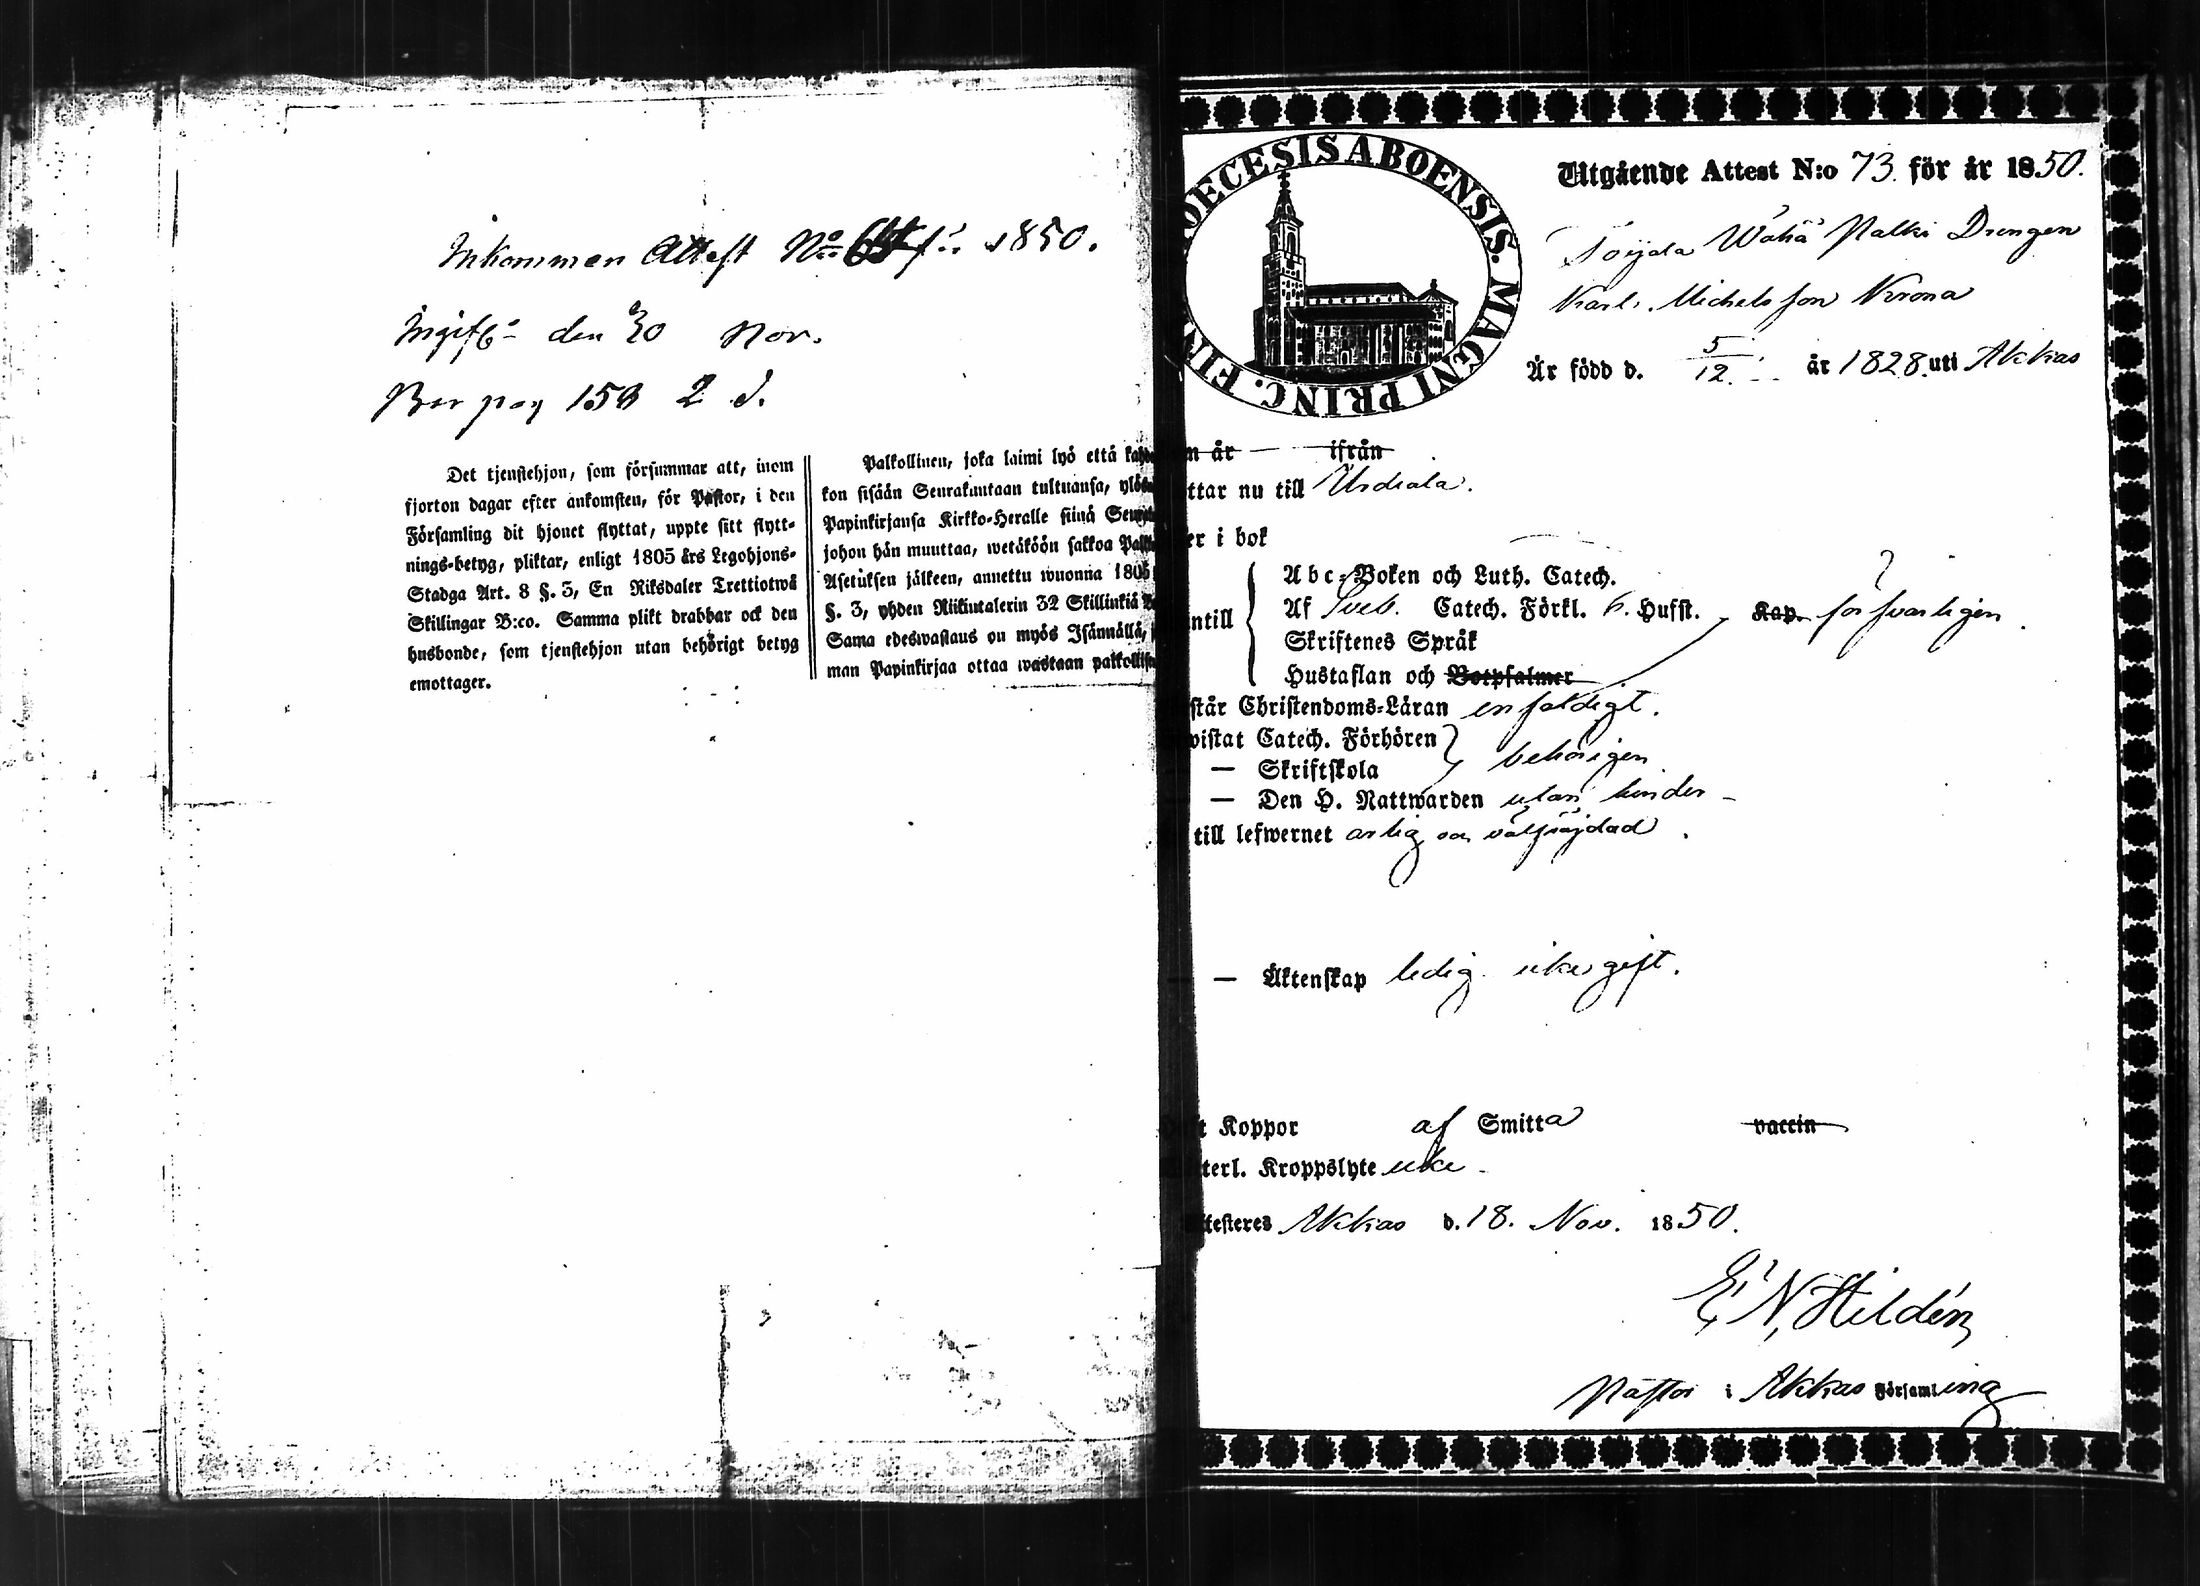 Inkommen Attest No för 1850.
den 30 Nov.
pag 158 2 d.
Det tjenstehjon, som försummar att, inom
fjorton dagar efter ankomsten, för Pastor, i den
Församling dit hjonet flyttat, uppte sitt flytt-
nings-betyg, pliktar, enligt 1805 års Legohjons-
Stadga Art. 8 §. 3, En Riksdaler Trettiotwå
Skillingar B:co. Samma plikt drabbar ock den
husbonde, som tjenstehjon utan behörigt betyg
emottager.
Palkollinen, joka laimi lyö että
kon sisään Seurakuntaan tultuansa,
Papinkirjansa Kirkko-Heralle siinä
johon hän muuttaa, wetäköön sakkoa
Asetuksen jälkeen, annettu wuonna 1805
§. 3, yhden Riikintalerin 32 Skillinkiä
Sama edeswastaus on myös Isännällä,
man Papinkirjaa ottaa wastaan
OECESIS ABOENSIS. MAGNI PRINC. FIN
Utgående Attest N:o 73. för år 1850.
Toijala Wähä Palki Drengen
Karl Michelsson Krona
Är född d. 5/12 år 1828. uti Akkas
om år ifrån
ttar nu till Urdiala.
er i bok
ntill
Abc-Boken och Luth. Catech.
Af Sveb. Catech. Förkl. 6. Hufst. Kap. försvarligen
Skriftenes Språk
Hustaflan och Botpsalmer
står Christendoms-Läran enfaldigt.
wistat Catech. Förhören
— Skriftskola behörigen
— Den H. Nattwarden utan hinder
till lefwernet ärlig och välfräjdad.
— Äktenskap ledig icke gift.
t Koppor af Smitta vaccin
terl. Kroppslyte icke
testeres Akkas d. 18. Nov. 1850.
E. N. Hildén
Pastor i Akkas Församling